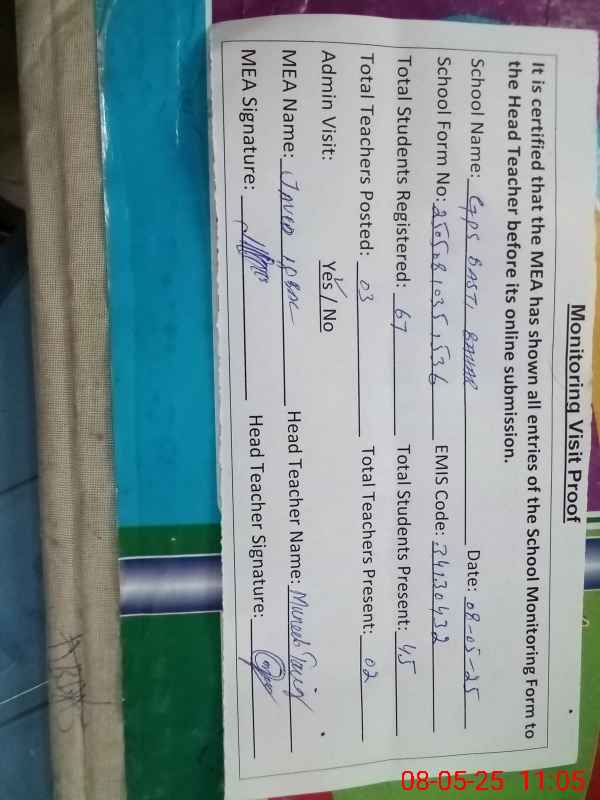 Monitoring Visit Proof
It is certified that the MEA has shown all entries of the School Monitoring Form to
the Head Teacher before its online submission.
School Name: GPS BASTI Date: 08-05-25
School Form No: EMIS Code: 34130432
Total Students Registered: 67 Total Students Present: 45
Total Teachers Posted: 03 Total Teachers Present: 02
Admin Visit: Yes / No
MEA Name: JAVED IQBAL Head Teacher Name: Muneeb
MEA Signature: Head Teacher Signature:
08-05-25 11:05